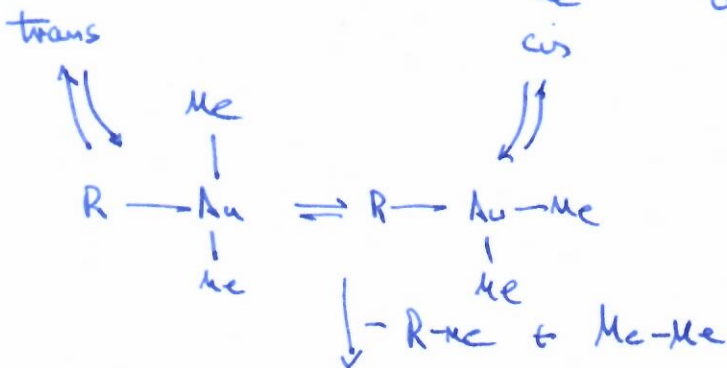 trans cis
Me
R — Au ⇌ R — Au — Me
Me Me
- R-Me + Me-Me